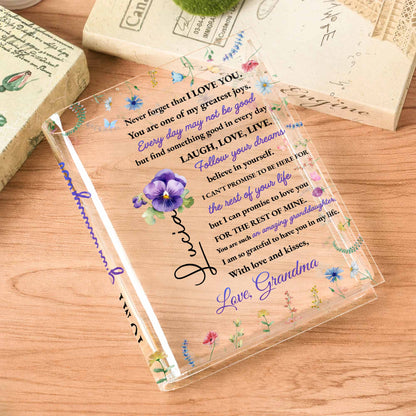 Never forget that I LOVE YOU.
You are one of my greatest joys.
Every day may not be good
but find something good in every day.
LAUGH, LOVE, LIVE.
Follow your dreams
believe in yourself.
I CAN'T PROMISE TO BE HERE FOR
the rest of your life
but I can promise to love you
FOR THE REST OF MINE.
You are such an amazing granddaughter,
I am so grateful to have you in my life.
With love and kisses,
Love, Grandma
Lucia